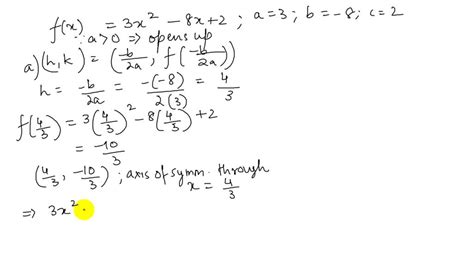 f(x) = 3x² - 8x + 2 ; a = 3 ; b = -8 ; c = 2
∵ a > 0 ⇒ opens up
a) (h, k) = (-b/2a, f(-b/2a))
h = -b/2a = -(-8)/2(3) = 4/3
f(4/3) = 3(4/3)² - 8(4/3) + 2
= -10/3
(4/3, -10/3) ; axis of symm. through
x = 4/3
⇒ 3x²